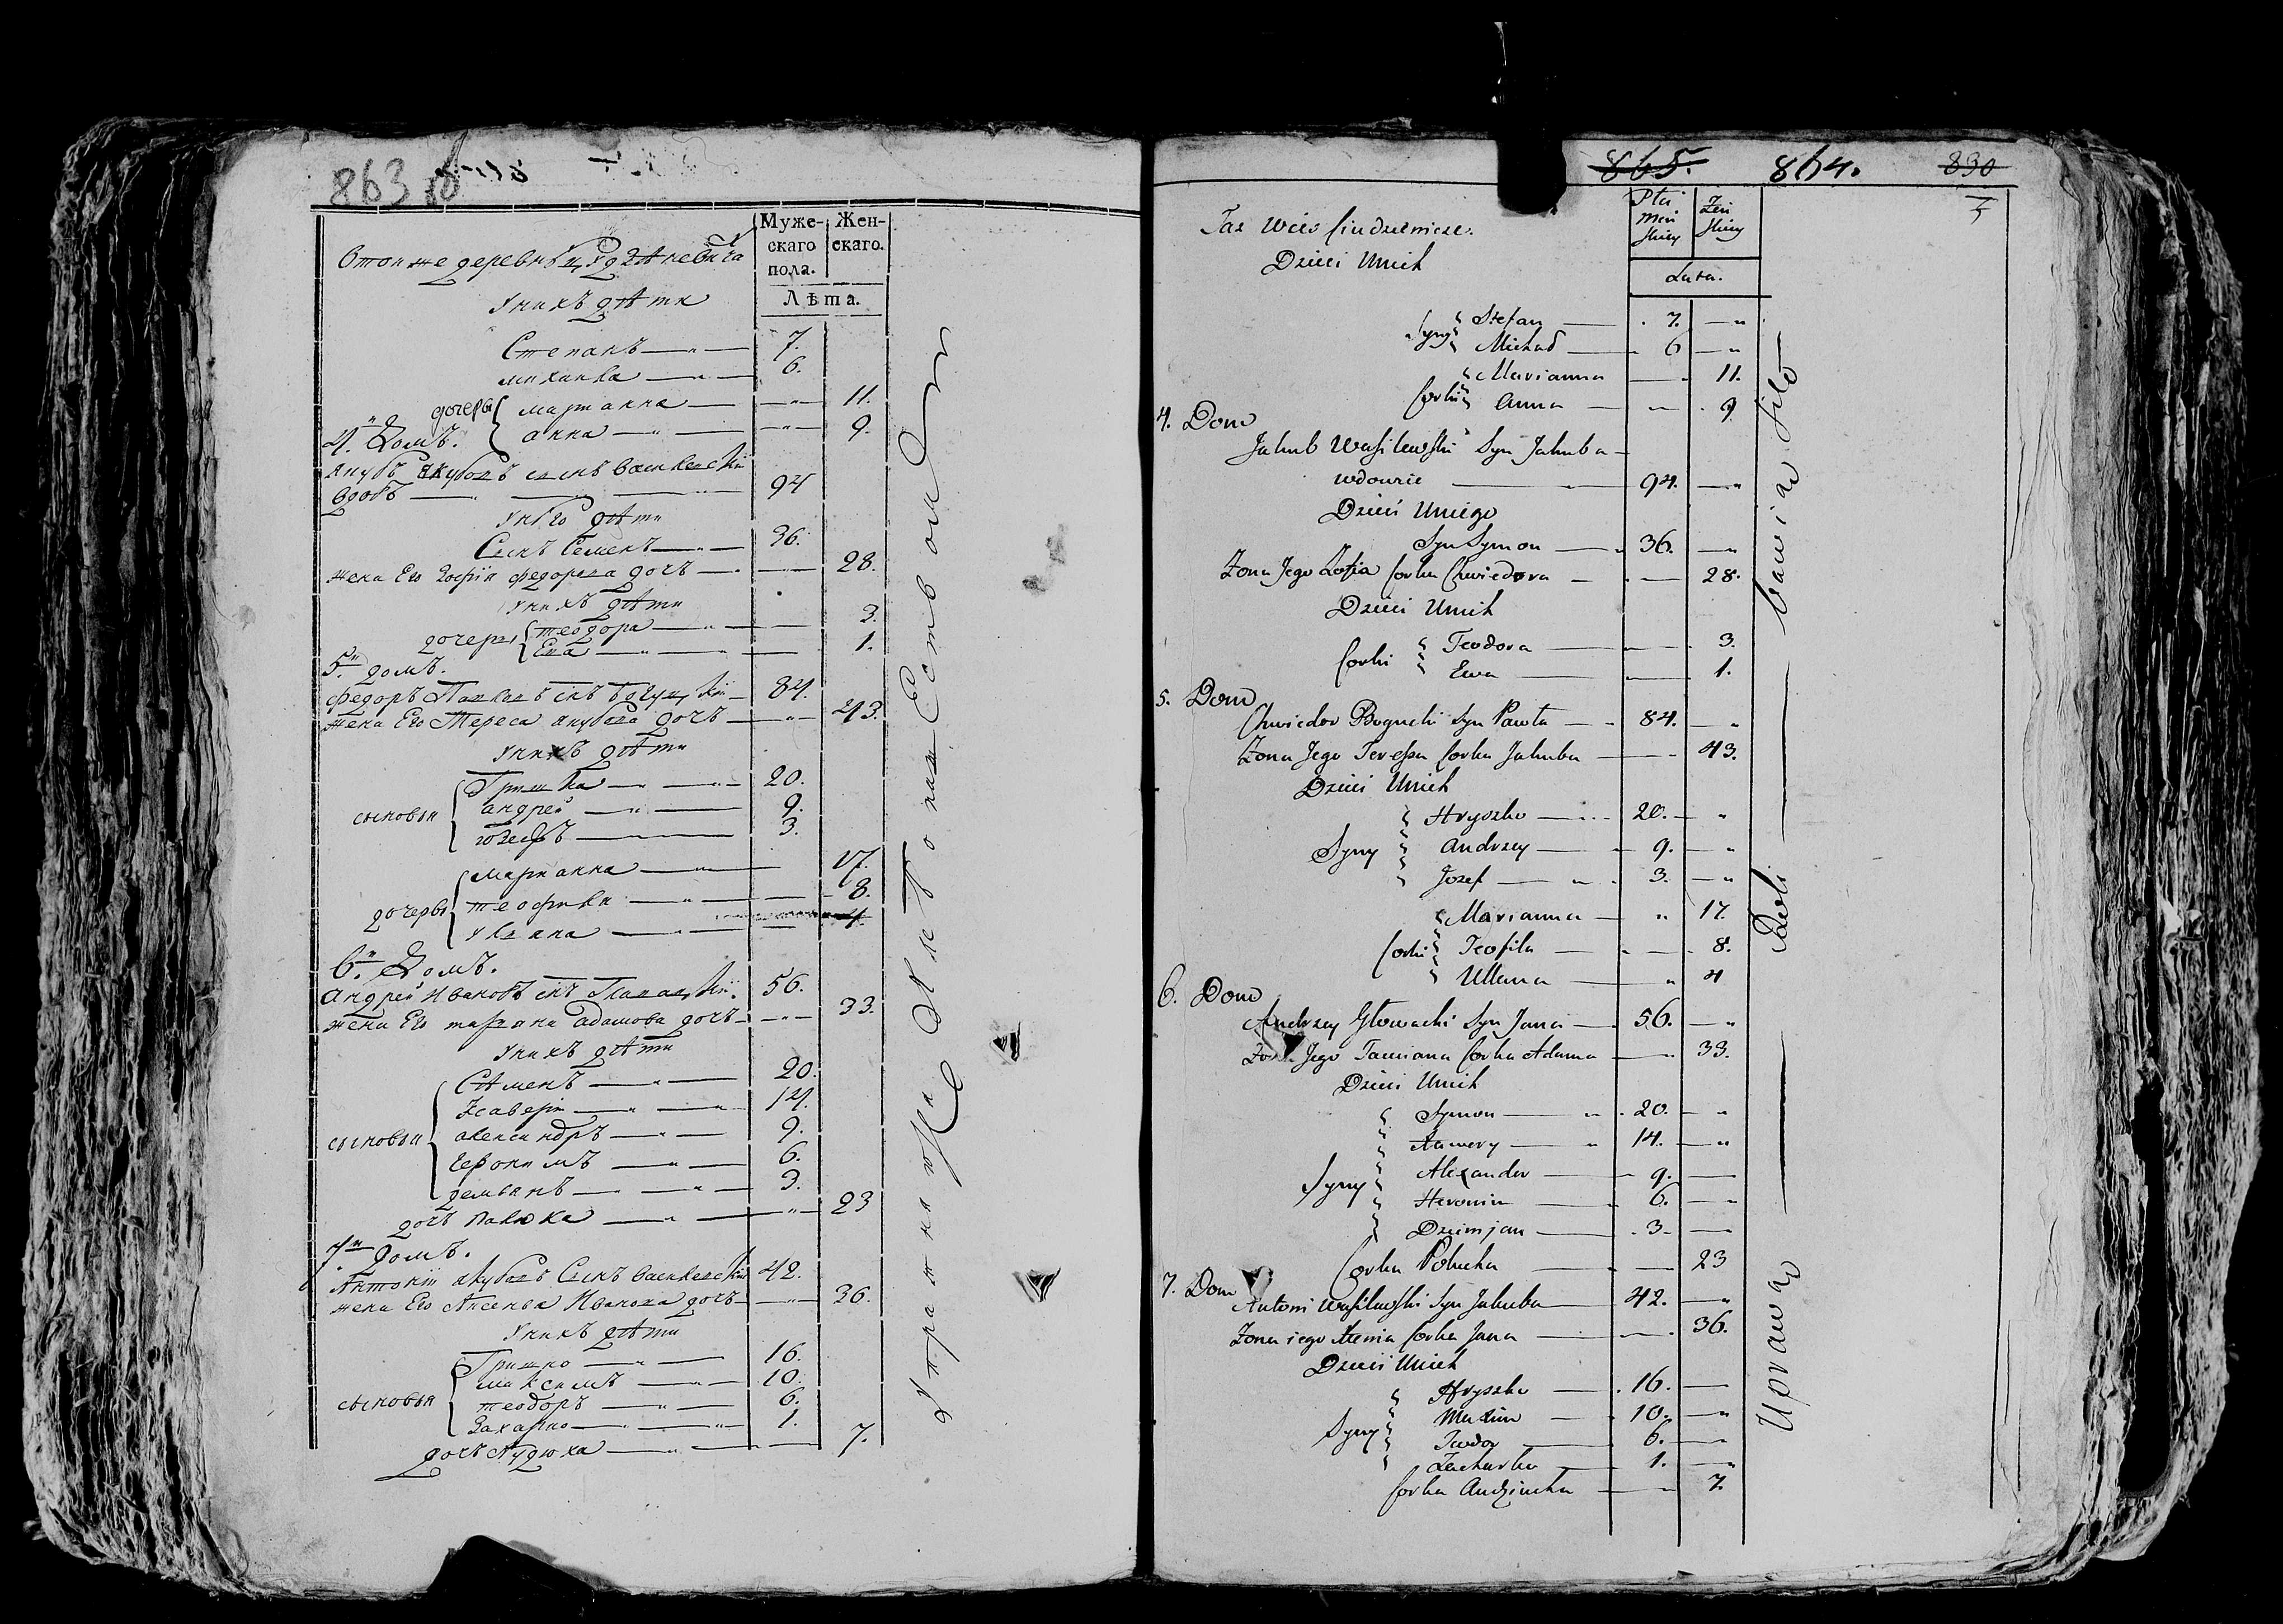 863
Муже-
скаго
пола.
Жен-
скаго.
Лѣта.
Втой же деревнѣ
У нихъ дѣти
Степанъ 7.
михаила 6.
дочеры марианна 11.
анна 9.
4.й Домъ.
якубъ якубовъ сынъ василевскій
вдовъ 94
У него дѣти
Сынъ Семенъ 36.
жена Его Зофія федорова дочъ 28.
У нихъ дѣти
дочеры теодора 3.
Ева 1.
5.й домъ.
федоръ Павловъ снъ Богуцкій 84.
жена Его Тереса якубова дочъ 43.
У нихъ дѣти
сыновья Гришка 20.
андрей 9.
юзефъ 3.
дочеры марианна 17.
теофила 8.
уляна 4.
6.й Домъ.
андрей Ивановъ снъ 56.
жена Его адамова дочъ 33.
У нихъ дѣти
сыновья Сѣменъ 20.
Ксаверій 14.
александръ 9.
Героnимъ 6.
демьянъ 3.
дочъ палюха 23
7.й домъ.
Антоній якубовъ Сынъ василевскій 42.
жена Его Аксенья Иванова дочъ 36.
У нихъ дѣти
сыновья Гришко 16.
максимъ 10.
теодоръ 6.
Захарко 1.
дочъ Аудюха 7.
865. 864. 830
Płci
Męs
skiey
Żeń
skiey
Lata.
Taż Wieś
Dzieci Unich
Syny Stefan 7.
Michał 6
Corki Marianna 11.
Anna 9
4. Dom
Jakub Wasilewski Syn Jakuba
wdowiec 94.
Dzieci Uniego
Syn Symon 36.
Żona Jego Zofia Corka Chwiedora 28.
Dzieci Unich
Corki Teodora 3.
Ewa 1.
5. Dom
Chwiedor Bogucki Syn Pawła 84.
Żona Jego Teressa Corka Jakuba 43.
Dzieci Unich
Syny Hryszko 20.
Andrzey 9.
Jozef 3.
Corki Marianna 17.
Teofila 8.
Ullana 4
6. Dom
Andrzey Głowacki Syn Jana 56.
Jego Tacciana Corka Adama 33.
Dzieci Unich
Syny Symon 20.
Xawery 14.
Alexander 9.
Heronim 6.
Dziemjan 3.
Corka Polucha 23
7. Dom
Antoni Wasilewski Syn Jakuba 42.
Żona iego Xienia Corka Jana 36.
Dzieci Unich
Syny Hryszko 16.
Maxim 10.
Teodor 6.
Zacharko 1.
Corka Audziucha 7.
Uprawą Roli bawią się